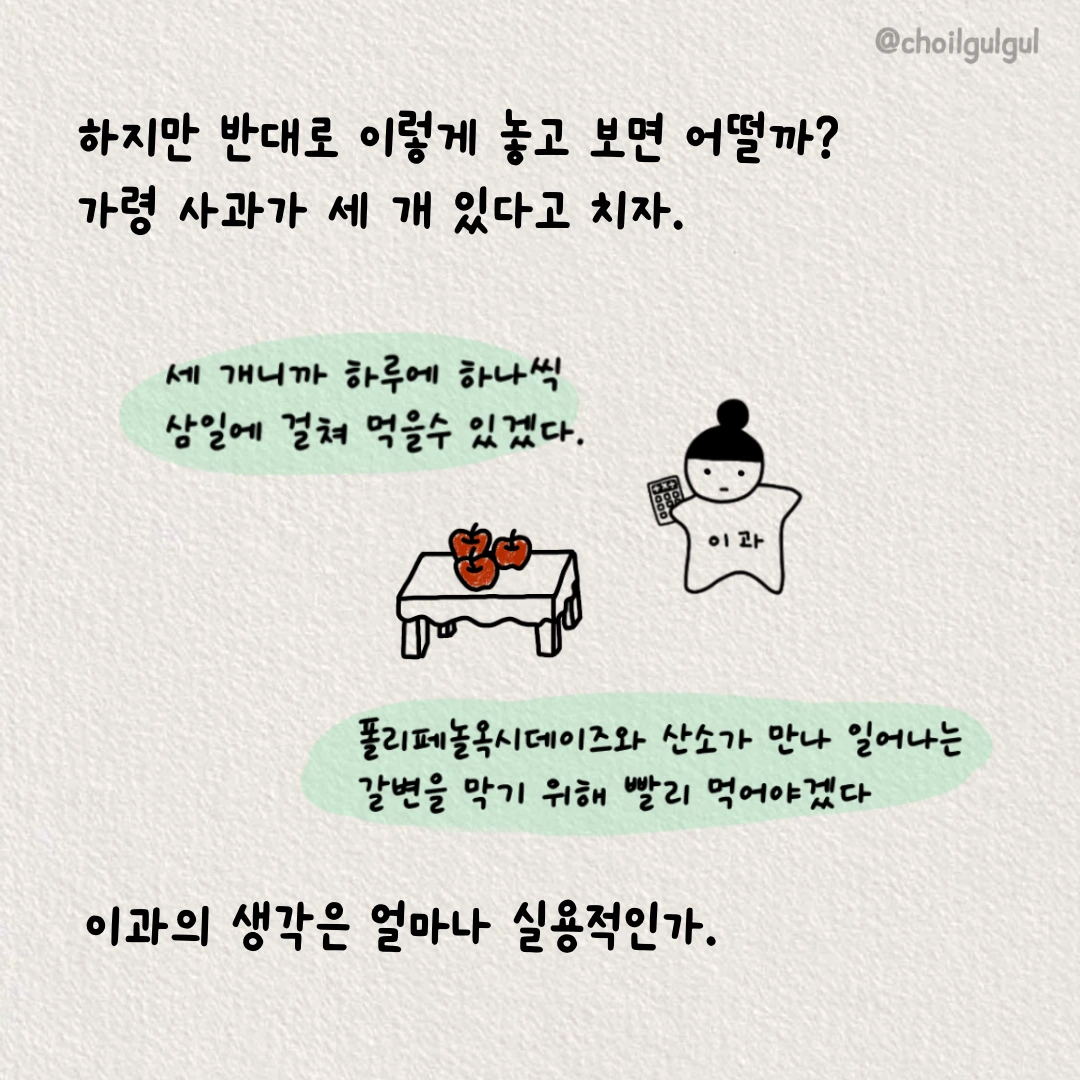 @choilgulgul
하지만 반대로 이렇게 놓고 보면 어떨까?
가령 사과가 세 개 있다고 치자.
세 개니까 하루에 하나씩
삼일에 걸쳐 먹을수 있겠다.
이과
폴리페놀옥시데이즈와 산소가 만나 일어나는
갈변을 막기 위해 빨리 먹어야겠다
이과의 생각은 얼마나 실용적인가.